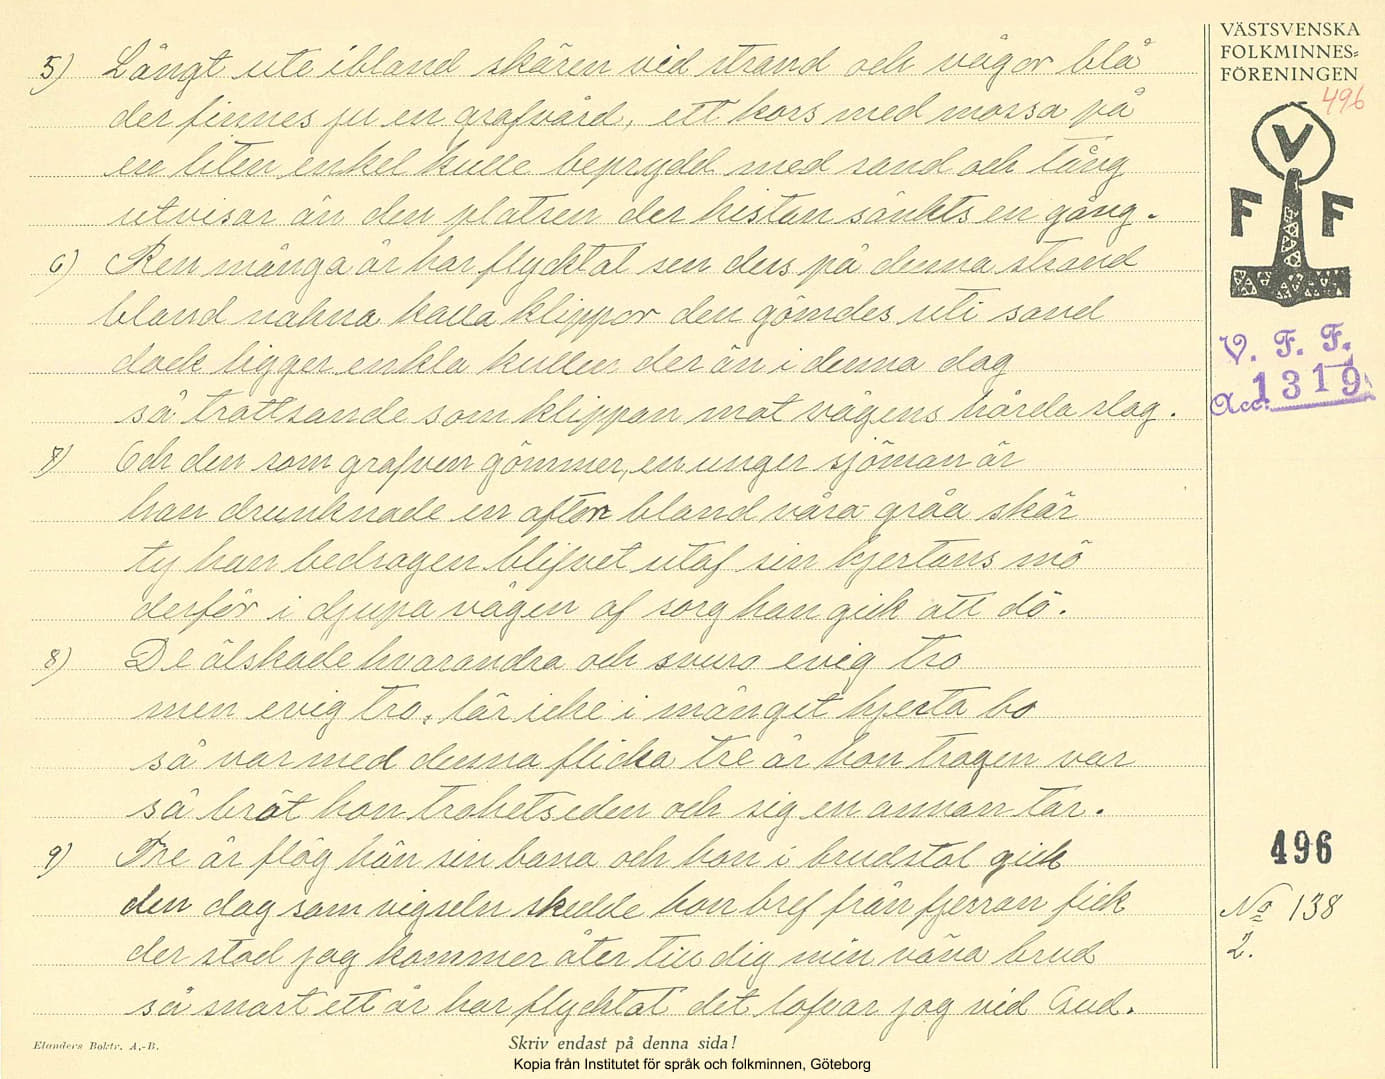 VÄSTSVENSKA
FOLKMINNES-
FÖRENINGEN
496
V
F F
V. F. F.
Acc. 1319
5) Långt ute ibland skären vid strand och vågor blå
der finnes ju en grafvård, ett kors med mossa på
en liten enkel kulle beprydd med sand och tång
utvisar än den platsen der kistan sänkts en gång.
6) Ren många år har flycktat sen dess på denna strand
bland nakna kalla klippor den gömdes uti sand
dock ligger enkla kullen der än i denna dag
så trottsande som klippan mot vågens hårda slag.
7) Och den som grafven gömmer, en unger sjöman är
han drunknade en afton bland våra gråa skär
ty han bedragen blifvet utaf sin hjertans mö
derför i djupa vågen af sorg han gick att dö.
8) De älskade hvarandra och svuro evig tro
men evig tro, lär icke i mänget hjerta bo
så var med denna flicka tre år hon trogen var
så bröt hon trohetseden och sig en annan tar.
9) Tre år flög hän sin bana och hon i brudstol gick
den dag som vigseln skedde hon bref från fjerran fick
der stod jag kommer åter till dig min väna brud
så snart ett år har flycktat det lofvar jag vid Gud.
496
No 138
2.
Elanders Boktr. A.-B.
Skriv endast på denna sida!
Kopia från Institutet för språk och folkminnen, Göteborg